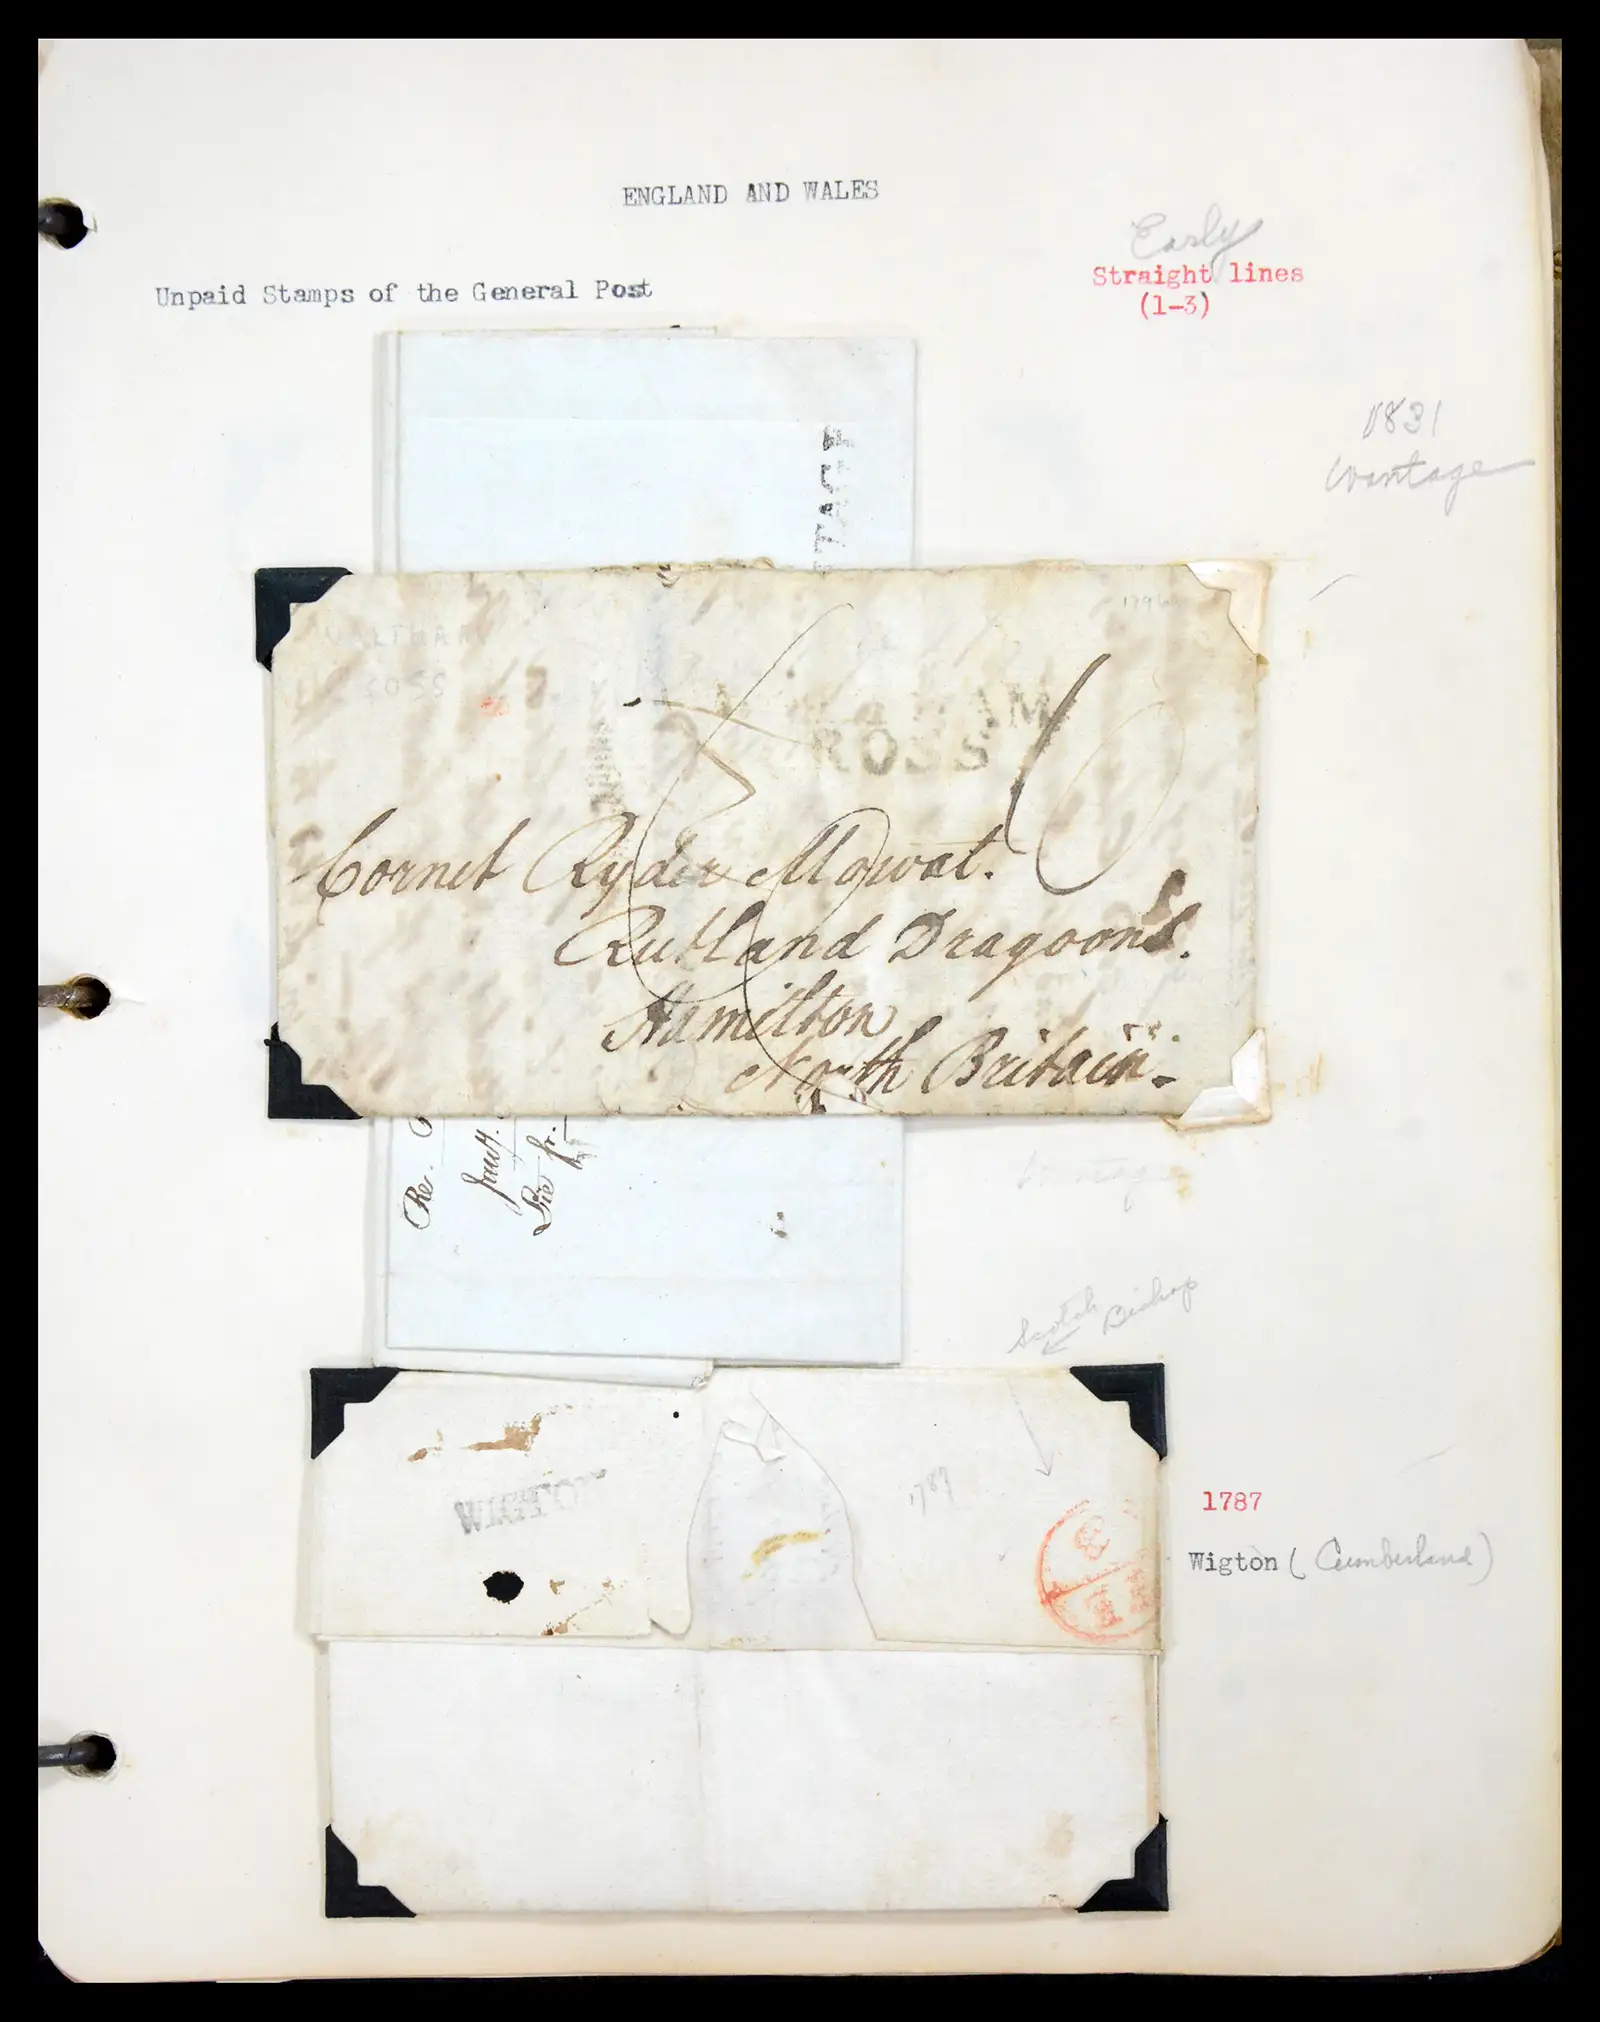 ENGLAND AND WALES
Early
Straight lines
(1-3)
Unpaid Stamps of the General Post
1831
Wantage
1796
WALTHAM
CROSS
AM
ROSS
Cornet Ryder Mowat.
Rutland Dragoons.
Hamilton
North Britain.
Re.
Wantage
Scotch Bishop
WIGTON
1787
1787
Wigton (Cumberland)